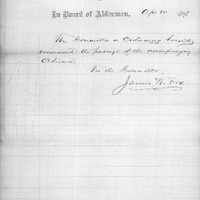 In Board of Aldermen, Sept 14 1878
The Committee on Ordinances
recommend the passage of the accompanying
Ordinance
For the Committee,
James W. Fox